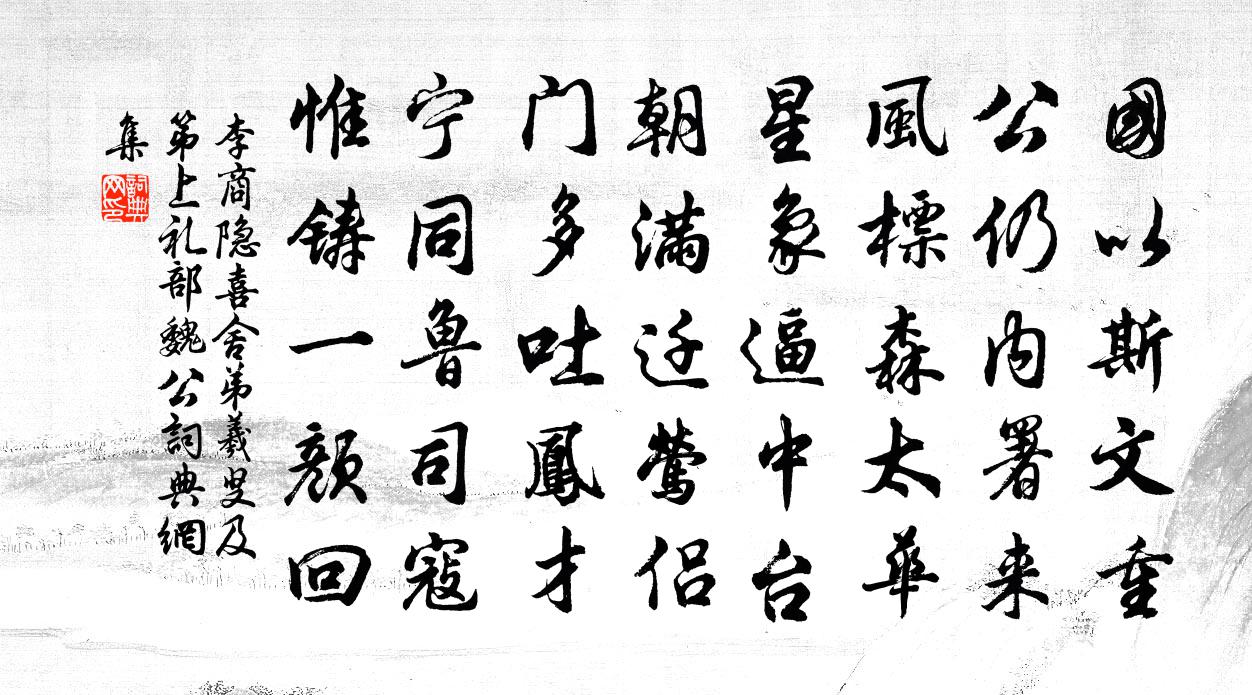 國以斯文重
公仍内署来
風標森太華
星象逼中台
朝滿迁鶯侣
门多吐鳳才
宁同魯司寇
惟鑄一顔回
李商隐喜舍弟羲叟及
第上礼部魏公詞典網
集
詞典
网印